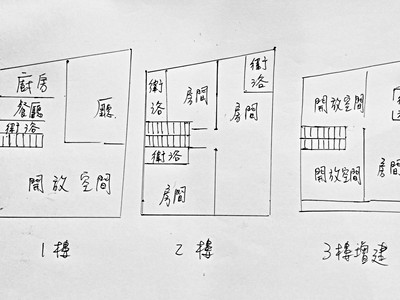 廚房
餐廳
衛浴
廳
開放空間
1樓
衛浴
房間
衛浴
房間
衛浴
房間
2樓
開放空間
開放空間
房間
3樓增建